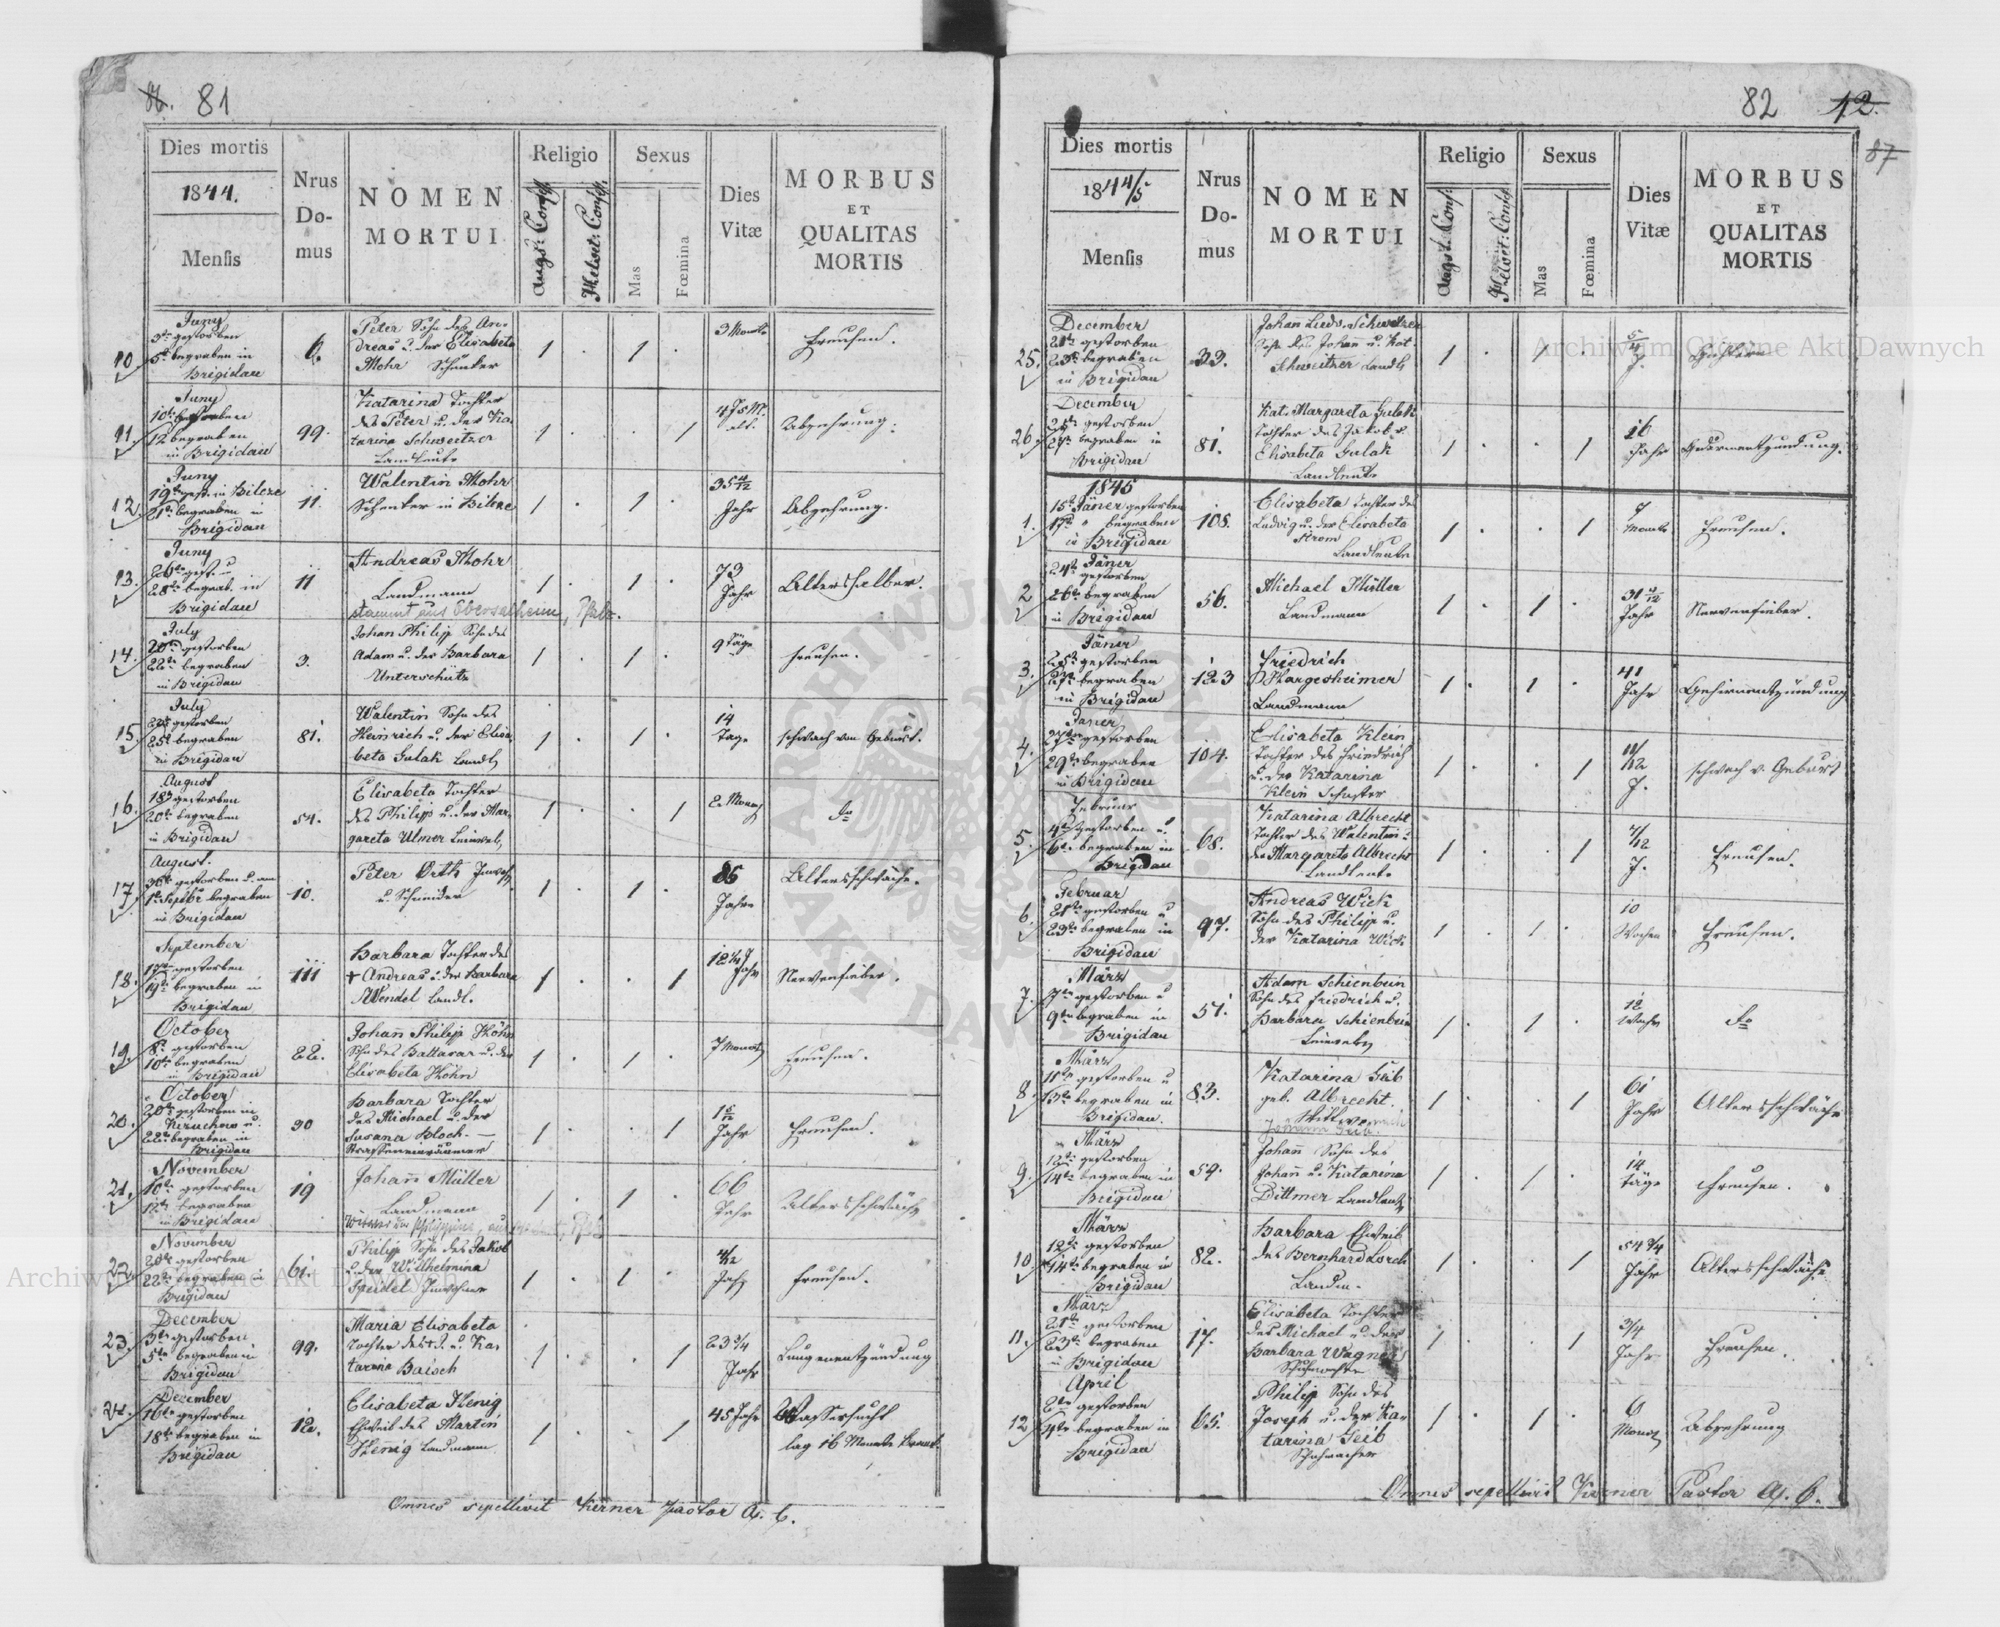 81
Dies mortis
1844.
Mensis
Nrus Domus
NOMEN MORTUI
Religio
Augs: Conf.
Helvet: Conf.
Sexus
Mas
Fœmina
Dies Vitæ
MORBUS
ET
QUALITAS
MORTIS
10
Juny
3n gestorben
5n begraben in
Brigidau
6.
Peter Sohn des An-
dreas u. der Elisabeta
Mohr Schenker
1 . 1 .
3 Monate
Freusen.
11.
Juny
10n gestorben
12 begraben
in Brigidau
99.
Katarina Tochter
des Peter u. der Ka-
tarina Schweitzer
Landleute
1 . . 1
Abzehrung.
12
Juny
19n gest. in Bilcze
21n begraben in
Brigidau
11.
Valentin Mohr
Schenker in Bilcze
1 . 1 .
35
Jahr
Abzehrung.
13.
Juny
26n gest. u
28n begrab. in
Brigidau
11
Andreas Mohr
Landmann
stammt aus Obersülheim, Pfalz.
1 . 1 .
73
Jahr
Altershalber.
14.
July
20n gestorben
22n begraben
in Brigidau
3.
Johan Philipp Sohn des
Adam u. der Barbara
Unterschütz
1 . 1 .
9 Täge
freusen.
15.
July
gestorben
25n begraben
in Brigidau
81.
Valentin Sohn des
Heinrich u. der Elisa-
beta Gulak Landl.
1 . 1 .
14
Tage
schwach von Geburt.
16.
August
18n gestorben
20n begraben
in Brigidau
54.
Elisabeta Tochter
des Philipp u. der Mar-
gareta Ulmer Leinweb.
1 . . 1
2 Monat
do
17.
August.
30n gestorben u. am
1n Septbr begraben
in Brigidau
10.
Peter Orth
u. Schneider
1 . 1 .
86
Jahre
Altersschwäche.
18.
September
17n gestorben
19n begraben in
Brigidau
111
Barbara Tochter des
+ Andreas u. der Barbara
Wendel Landl.
1 . . 1
Jahr
Nervenfieber.
19.
October
8n gestorben
10n begraben
in Brigidau
22.
Johann Philipp Höhn
Sohn des Baltasar u. der
Elisabeta Höhn
1 . 1 .
7 Monate
freusen.
20.
October
20n gestorben in
u.
22n begraben in
Brigidau
90
Barbara Tochter
des Michael u. der
Susana Bloch.
Strassenenräumer
1 . . 1
Jahr
Freusen.
21.
November
10n gestorben
12n begraben
in Brigidau
19
Johann Müller
Landmann
1 . 1 .
66
Jahr
Altersschwäche
22.
November
20n gestorben
22n begraben in
Brigidau
61.
Philipp Sohn des Jakob
u. der Wilhelmina
Speidel Inwohner
1 . 1 .
Jahr
Freusen.
23.
December
3n gestorben
5n begraben in
Brigidau
99.
Maria Elisabeta
Tochter des J. u. Ka-
tarina Baisch
1 . . 1
Jahr
Lungenentzündung
24.
December
16n gestorben
18n begraben in
Brigidau
12.
Elisabeta Henig
Eheweib des Martin
Henig Landmann
1 . . 1
45 Jahr
Wassersucht
lag 16 Monate krank.
Omnes sepellivit Kerner Pastor A. C.
82
42.
87
Dies mortis
1844/5
Mensis
Nrus Domus
NOMEN MORTUI
Religio
Augst: Conf:
Helvet: Conf
Sexus
Mas
Fœmina
Dies Vitæ
MORBUS
ET
QUALITAS
MORTIS
25.
December
21n gestorben
23n begraben
in Brigidau
33.
Johann Ludw. Schweitzer
Sohn des Johann u. Kat.
Schweitzer Landl.
1 . 1 .
J.
26.
December
25n gestorben
27n begraben in
Brigidau
81.
Kat. Margareta Gulak
Tochter des Jakob u.
Elisabeta Gulak
Landleute
1 . . 1
16
Jahr
Gedärmentzündung.
1845
1.
15n Jäner gestorben
17n " begraben
in Brigidau
108.
Elisabeta Tochter des
Ludwig u. der Elisabeta
Strom
Landleute
1 . . 1
7
Monate
Freusen.
2
Jäner
24n gestorben
26n begraben
in Brigidau
56.
Michael Müller
Landmann
1 . 1 .
31
Jahr
Nervenfieber.
3.
Jäner
25n gestorben
27n begraben
in Brigidau
123
Friedrich
D'Hargesheimer
Landmann
1 . 1 .
41
Jahr
Gehirnentzündung
4.
Janer
27n gestorben
29n begraben
in Brigidau
104.
Elisabeta Klein
Tochter des Friedrich
u. der Katarina
Klein Schuster
1 . . 1
J.
schwach v. Geburt
5.
Februar
4n gestorben u.
6n begraben in
Brigidau
68.
Katarina Albrecht
Tochter des Valentin u.
der Margareta Albrecht
Landleute
1 . . 1
J.
Freusen.
6.
Februar
21n gestorben u
23n begraben in
Brigidau
97.
Andreas Wick
Sohn des Philipp u.
der Katarina Wick
1 . 1 .
10
Wochen
Freusen.
7.
März
7n gestorben u
9n begraben in
Brigidau
51.
Adam Schienbein
Sohn des Friedrich u.
Barbara Schienbein
Leinweb.
1 . 1 .
12
Woche
do
8.
März
11n gestorben u
13n begraben in
Brigidau.
83.
Katarina Geib
geb. Albrecht.
Wittwe
Johann Geib
1 . . 1
61
Jahr
Altersschwäche
9.
März
12n gestorben
14n begraben in
Brigidau
59.
Johann Sohn des
Johann u. Katarina
Dittmer Landleute
1 . 1 .
14
Täge
Freusen.
10
März
12n gestorben
14n begraben in
Brigidau
82.
Barbara Eheweib
des Bernhard Lorch
Landm.
1 . . 1
54 3/4
Jahr
Altersschwäche
11.
März
21n gestorben
23n begraben
in Brigidau
17.
Elisabeta Tochter
des Michael u. der
Barbara Wagner
1 . . 1
3/4
Jahr
Freusen.
12
April
2n gestorben
4n begraben in
Brigidau
65.
Philipp Sohn des
Joseph u. der Ka-
tarina Geib
Schuhmacher
1 . 1 .
6
Monat
Abzehrung
Omnes sepellivit Kerner Pastor A. C.
Archiwum Główne Akt Dawnych
Archiwum Główne Akt Dawnych
ARCHIWUM GŁÓWNE AKT DAWNYCH